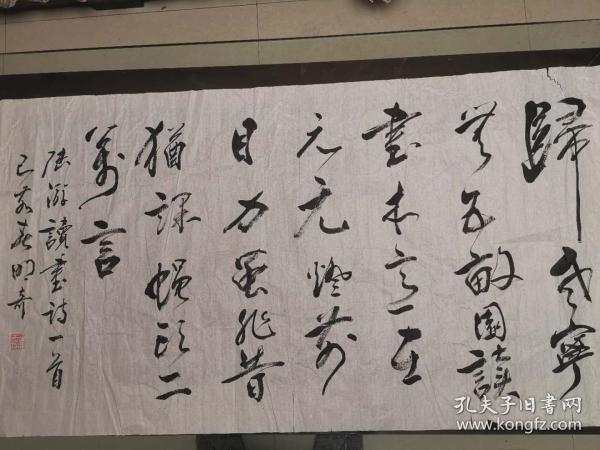 歸老寧
無五畝園讀
書本意在
元元燈前
目力雖非昔
猶課蠅頭二
萬言
陸游讀書詩一首
己亥春明奇
孔夫子旧書网
www.kongfz.com